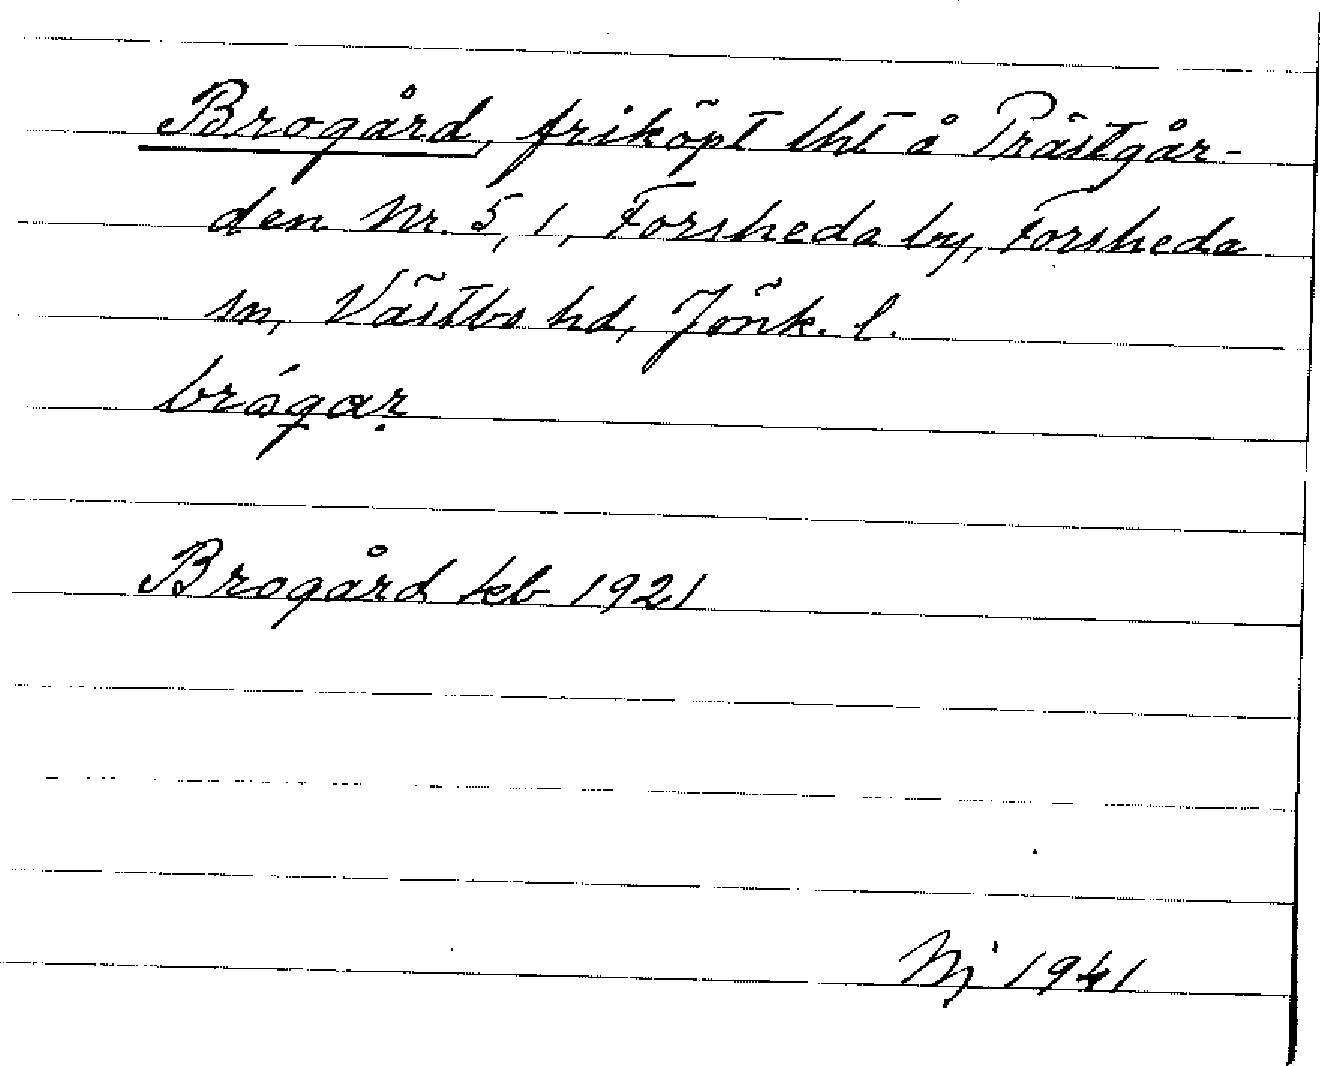 Brogård, friköpt lht å Prästgår-
den Nr. 5, 1, Forsheda by, Forsheda
sn, Västbo hd, Jönk. l.
brógaṛ
Brogård keb 1921
Nj 1941